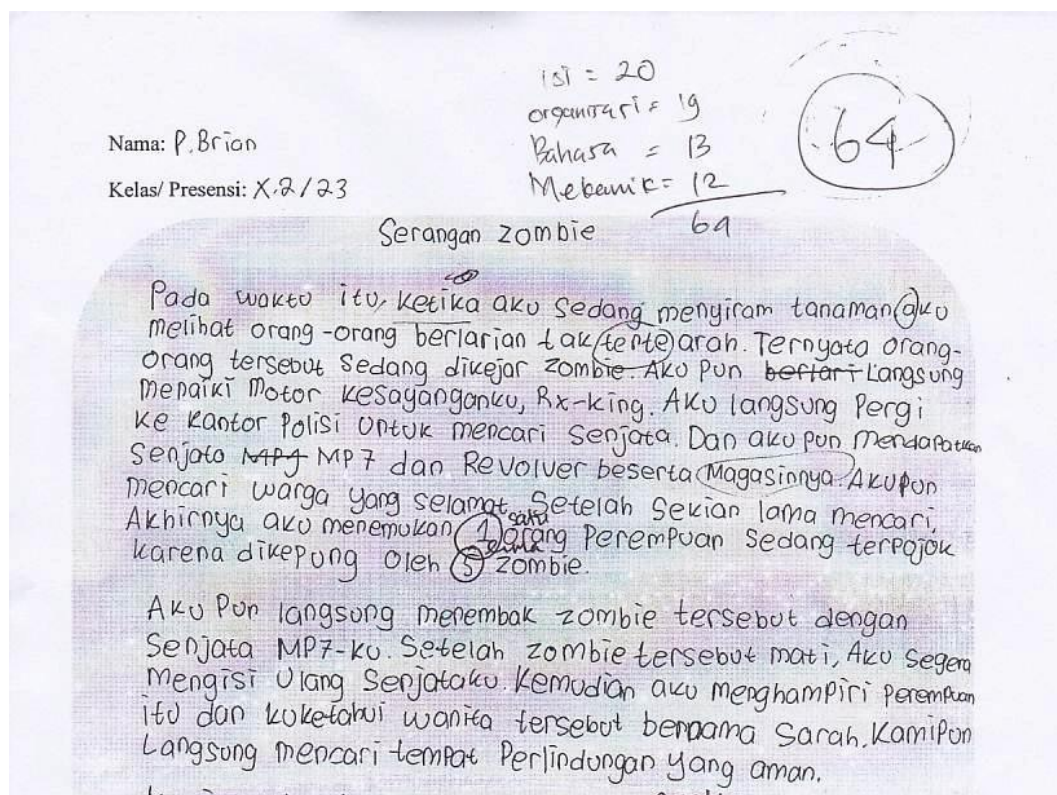 isi = 20
organisasi = 19
Bahasa = 13
Mekanik = 12
64
64
Nama: P. Brian
Kelas/ Presensi: X.2 / 23
Serangan zombie
Pada waktu itu, ketika aku sedang menyiram tanaman aku
melihat orang-orang berlarian tak tente arah. Ternyata orang-
orang tersebut sedang dikejar zombie. Aku pun berlari Langsung
menaiki motor kesayanganku, Rx-king. Aku langsung Pergi
ke kantor Polisi untuk mencari senjata. Dan aku pun mendapatkan
senjata MP7 dan Revolver beserta Magasinnya. Akupun
mencari warga yang selamat. Setelah sekian lama mencari,
satu
Akhirnya aku menemukan 1 orang Perempuan sedang terpojok
lima
karena dikepung oleh 5 zombie.
Aku Pun langsung menembak zombie tersebut dengan
Senjata MP7-ku. Setelah zombie tersebut mati, Aku segera
mengisi Ulang Senjataku. Kemudian aku menghampiri Perempuan
itu dan kuketahui wanita tersebut bernama Sarah. KamiPun
Langsung mencari tempat Perlindungan yang aman.